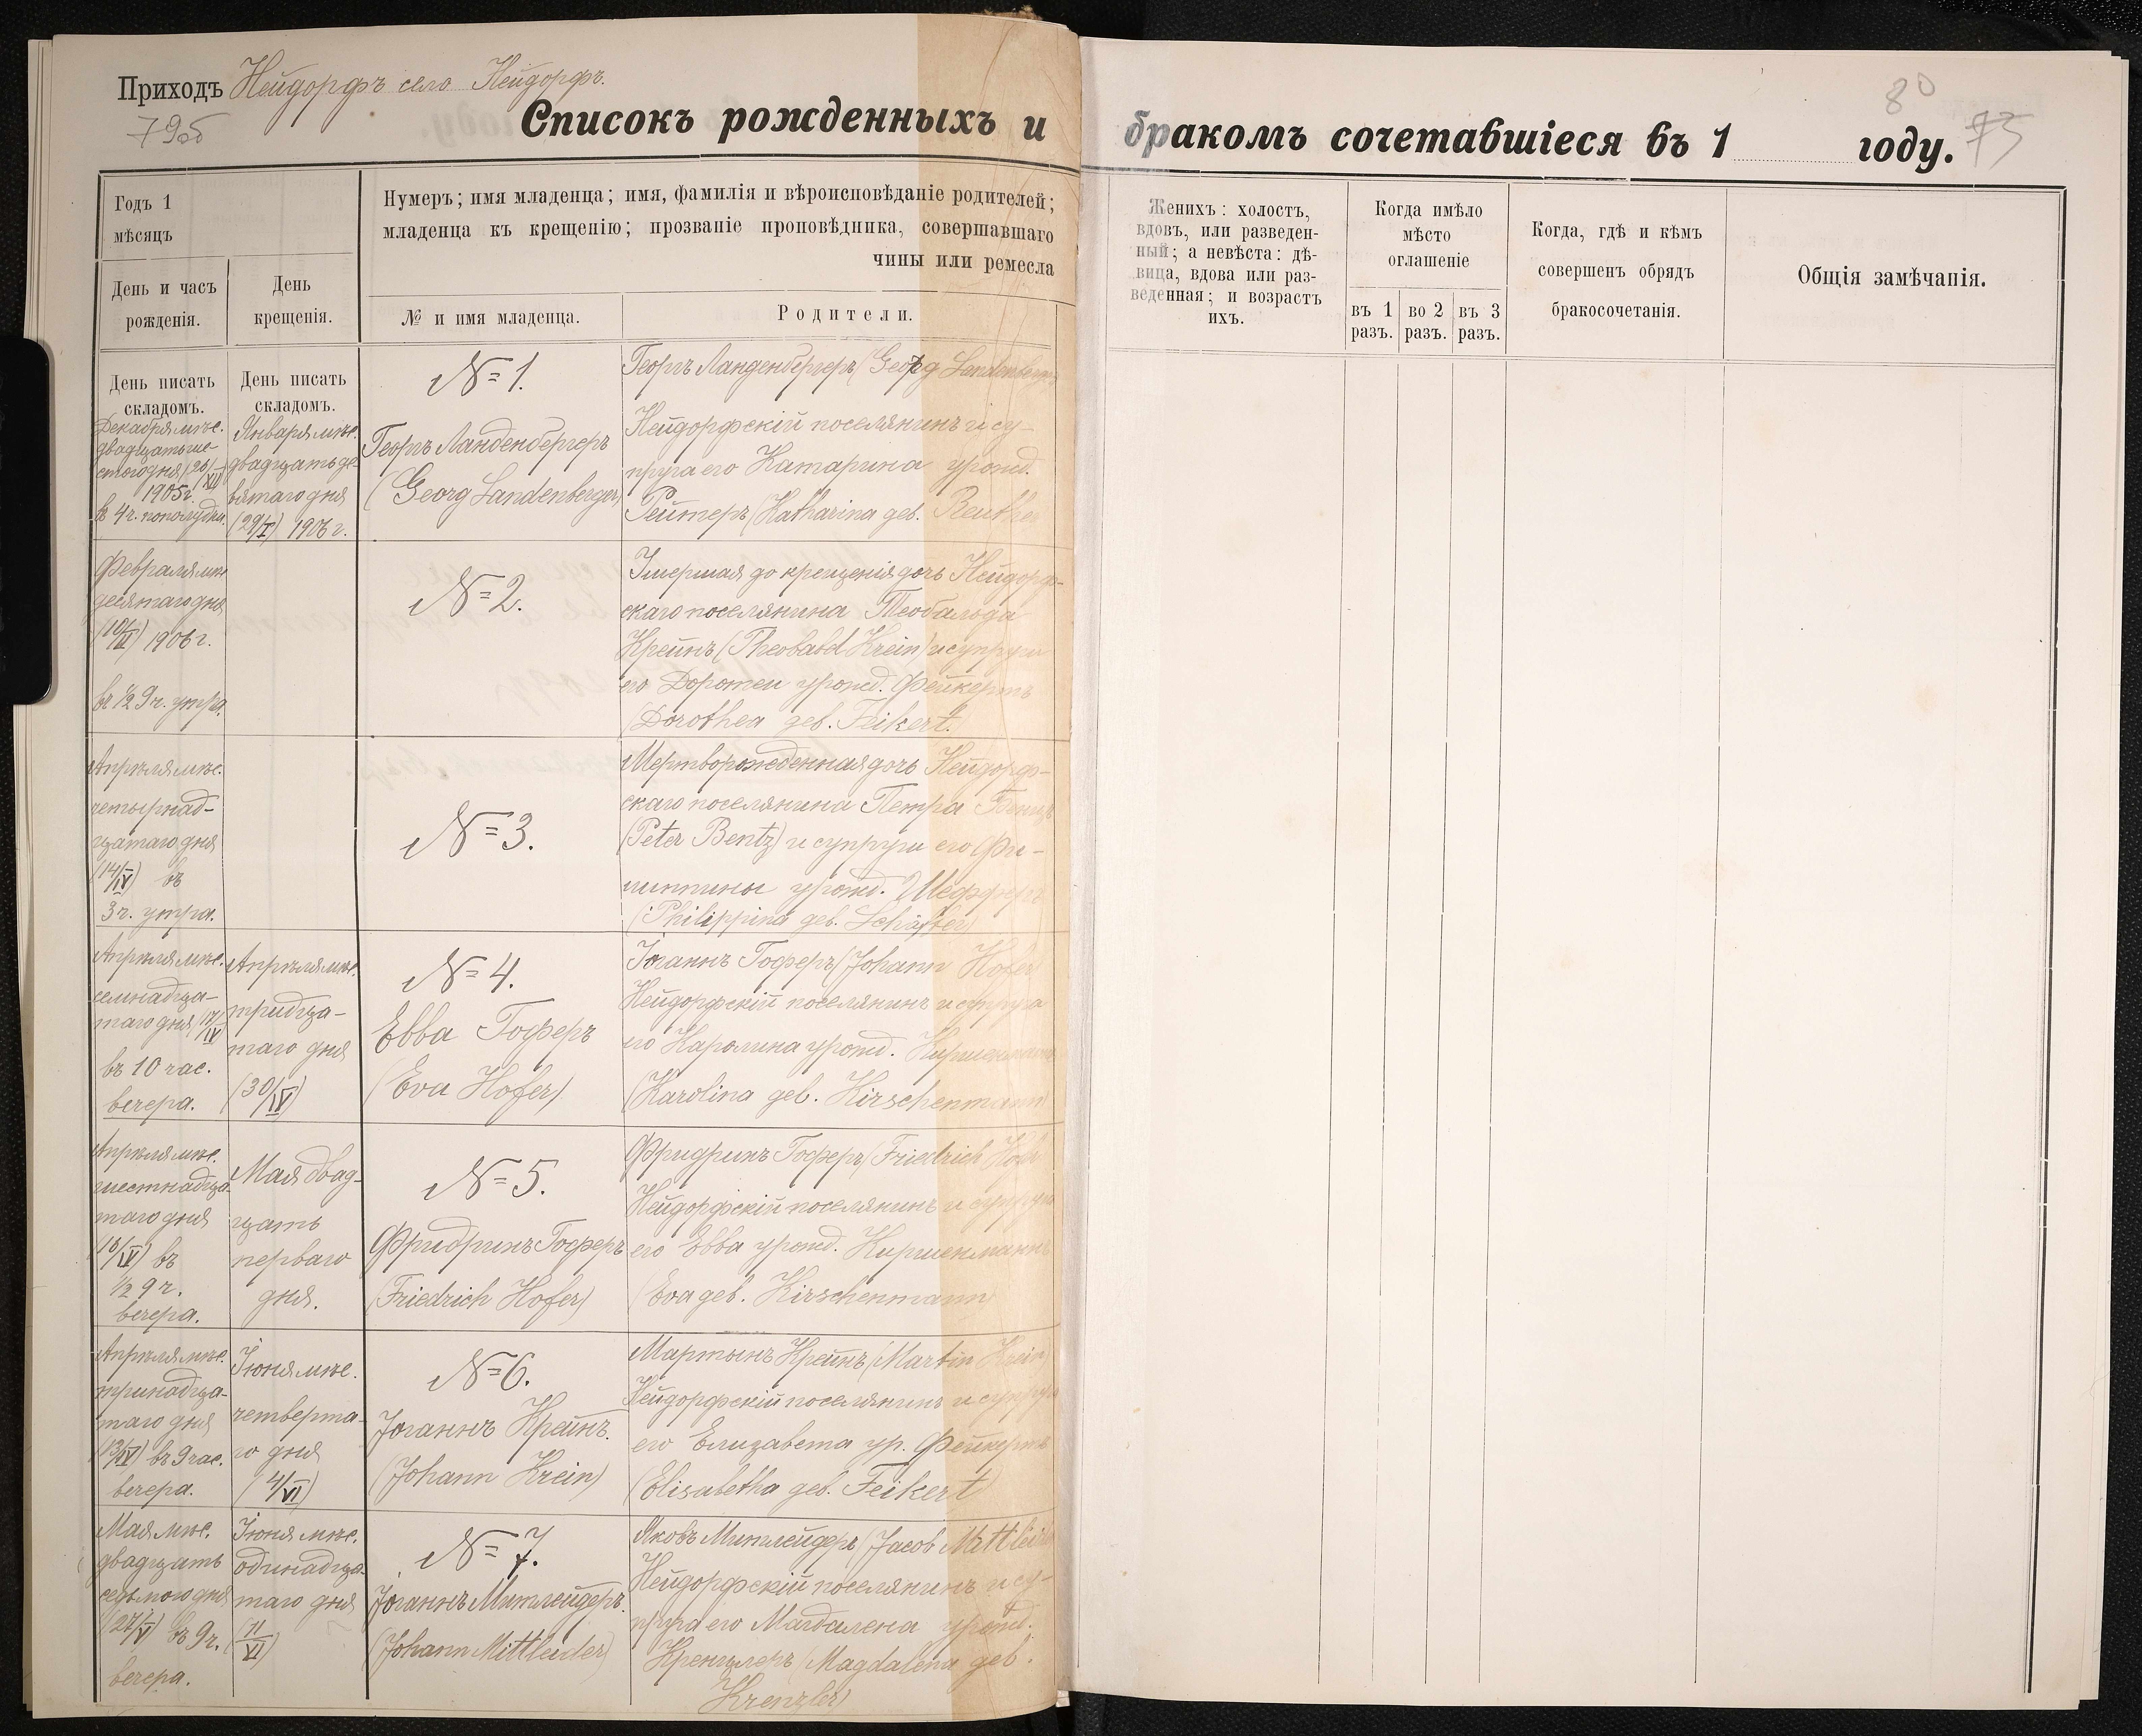 Приходъ Нейдорфъ село Нейдорфъ.
79об
Списокъ рожденныхъ и
Годъ 1
мѣсяцъ
Нумеръ; имя младенца; имя, фамилія и вѣроисповѣданіе родителей;
младенца къ крещенію; прозваніе проповѣдника, совершавшаго
чины или ремесла
День и часъ
рожденія.
День
крещенія.
№ и имя младенца.
Родители.
День писать
складомъ.
День писать
складомъ.
Декабря мѣс.
двадцать ше-
стого дня (26/XII)
1905 г.
въ 4 ч. пополудни.
Января мѣс.
двадцать де-
вятаго дня
(29/I) 1906 г.
№ 1.
Георгъ Ланденбергеръ
(Georg Landenberger)
Георгъ Ланденбергеръ (Georg Landenberger
Нейдорфскій поселянинъ и су-
пруга его Катарина урожд.
Рейтеръ (Katharina geb. Reuther
Февраля мѣс
десятаго дня
(10/II) 1906 г.
въ ½ 9 ч. утра.
№ 2.
Умершая до крещенія дочь Нейдорф-
скаго поселянина Теобальда
Крейнъ (Theobald Krein) и супруги
его Доротеи урожд. Фейкертъ
(Dorothea geb. Feikert.)
Апрѣля мѣс.
четырнад-
цатаго дня
(14/IV) въ
3 ч. утра.
№ 3.
Мертворожденная дочь Нейдорф-
скаго поселянина Петра Бенцъ
(Peter Bentz) и супруги его Фи-
липпины урожд. Шефферъ
(Philippina geb. Schäffer)
Апрѣля мѣс.
семнадца-
таго дня (17/IV)
въ 10 час.
вечера.
Апрѣля мѣс.
тридца-
таго дня
(30/IV)
№ 4.
Евва Гоферъ
(Eva Hofer)
Іоганнъ Гоферъ (Johann Hofer
Нейдорфскій поселянинъ и супруга
его Каролина урожд. Киршенманнъ
(Karolina geb. Kirschenmann)
Апрѣля мѣс.
шестнадца-
таго дня
(16/IV) въ
½ 9 ч.
вечера.
Мая двад-
цать
перваго
дня.
№ 5.
Фридрихъ Гоферъ
(Friedrich Hofer)
Фридрихъ Гоферъ (Friedrich Hofer
Нейдорфскій поселянинъ и супруга
его Евва урожд. Киршенманнъ
(Eva geb. Kirschenmann)
Апрѣля мѣс.
тринадца-
таго дня
(13/IV) въ 9 час.
вечера.
Іюня мѣс.
четверта-
го дня
(4/VI)
№ 6.
Іоганнъ Крейнъ.
(Johann Krein)
Мартынъ Крейнъ (Martin Krein)
Нейдорфскій поселянинъ и супруга
его Елизавета ур. Фейкертъ
(Elisabetha geb. Feikert)
Мая мѣс.
двадцать
седьмого дня
(27/V) въ 9 ч.
вечера.
Іюня мѣс.
одинадца-
таго дня
(11/VI)
№ 7.
Іоганнъ Митлейдеръ.
(Johann Mittleider)
Яковъ Митлейдеръ (Jacob Mittleider
Нейдорфскій поселянинъ и су-
пруга его Магдалена урожд.
Кренцлеръ (Magdalena geb.
Krenzler)
80
бракомъ сочетавшіеся въ 1 году.
73
Женихъ: холостъ,
вдовъ, или разведен-
ный; а невѣста: дѣ-
вица, вдова или раз-
веденная; и возрастъ
ихъ.
Когда имѣло
мѣсто
оглашеніе
въ 1
разъ.
во 2
разъ.
въ 3
разъ.
Когда, гдѣ и кѣмъ
совершенъ обрядъ
бракосочетанія.
Общія замѣчанія.